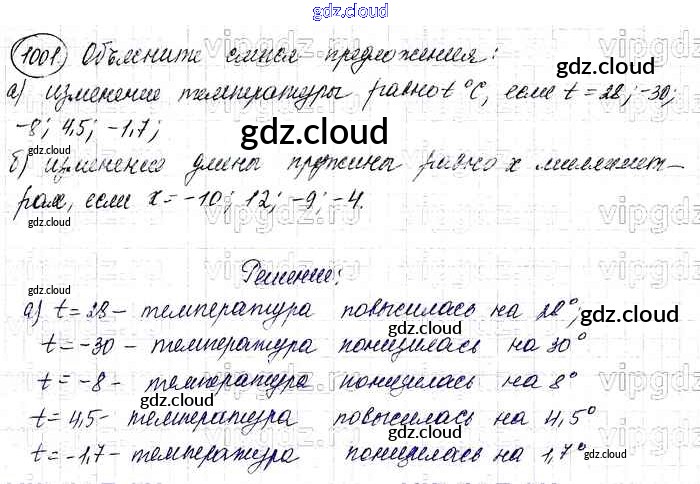 gdz.cloud
1001. Объясните смысл предложения:
gdz.cloud
а) изменение температуры равно t °C, если t = 28; -30;
-8; 4,5; -1,7;
gdz.cloud
gdz.cloud
б) изменение длины пружины равно x миллимет-
рам, если x = -10; 12; -9; -4.
gdz.cloud
gdz.cloud
Решение:
gdz.cloud
а) t = 28 - температура повысилась на 28°;
gdz.cloud
gdz.cloud
t = -30 - температура понизилась на 30°
gdz.cloud
t = -8 - температура понизилась на 8°
gdz.cloud
t = 4,5 - температура повысилась на 4,5°
gdz.cloud
t = -1,7 - температура понизилась на 1,7°
gdz.cloud